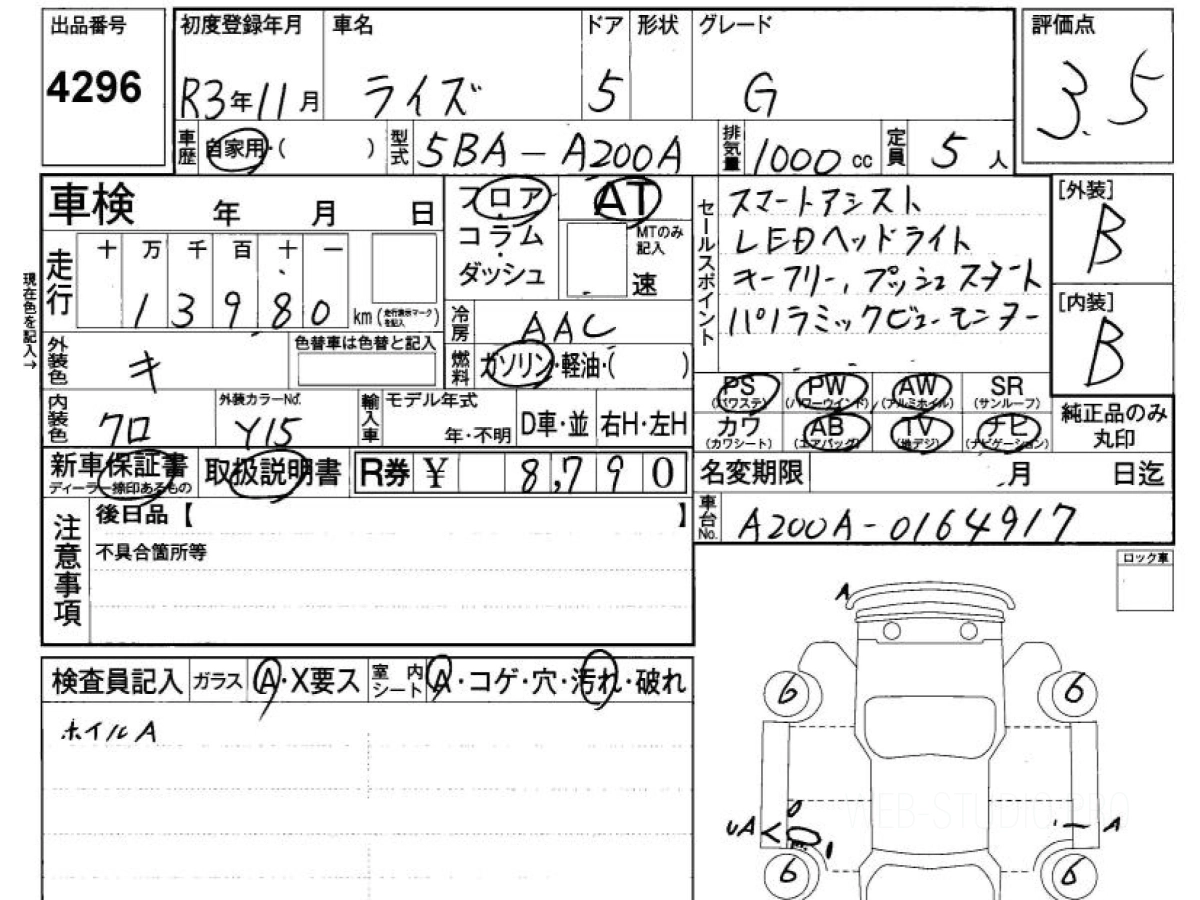 出品番号 初度登録年月 車名 ドア 形状 グレード 評価点
4296 R3年11月 ライズ 5 G 3.5
車歴 自家用・( ) 型式 5BA-A200A 排気量 1000cc 定員 5人
車検 年 月 日
フロア・コラム・ダッシュ
AT
MTのみ記入
速
セールスポイント
スマートアシスト
LEDヘッドライト
キーフリー,プッシュスタート
パノラミックビューモニター
[外装]
B
[内装]
B
現在色を記入→
走行 十 万 千 百 十 一
13980 km(走行表示マークを記入)
冷房 AAC
燃料 ガソリン・軽油・( )
外装色 キ
色替車は色替と記入
PS (パワステ) PW (パワーウインド) AW (アルミホイル) SR (サンルーフ)
カワ (カワシート) AB (エアバッグ) TV (地デジ) ナビ (ナビゲーション)
純正品のみ丸印
内装色 クロ 外装カラーNo. Y15 輸入車 モデル年式 年・不明 D車・並 右H・左H
新車保証書 ディーラー捺印あるもの 取扱説明書 R券 ¥ 8,790
名変期限 月 日迄
車台No. A200A-0164917
注意事項
後日品【 】
不具合箇所等
ロック車
検査員記入 ガラス A・X要ス 室内シート A・コゲ・穴・汚れ・破れ
ホイルA
A
6 6
UA A
6 6
WEB-STUDIO.PRO